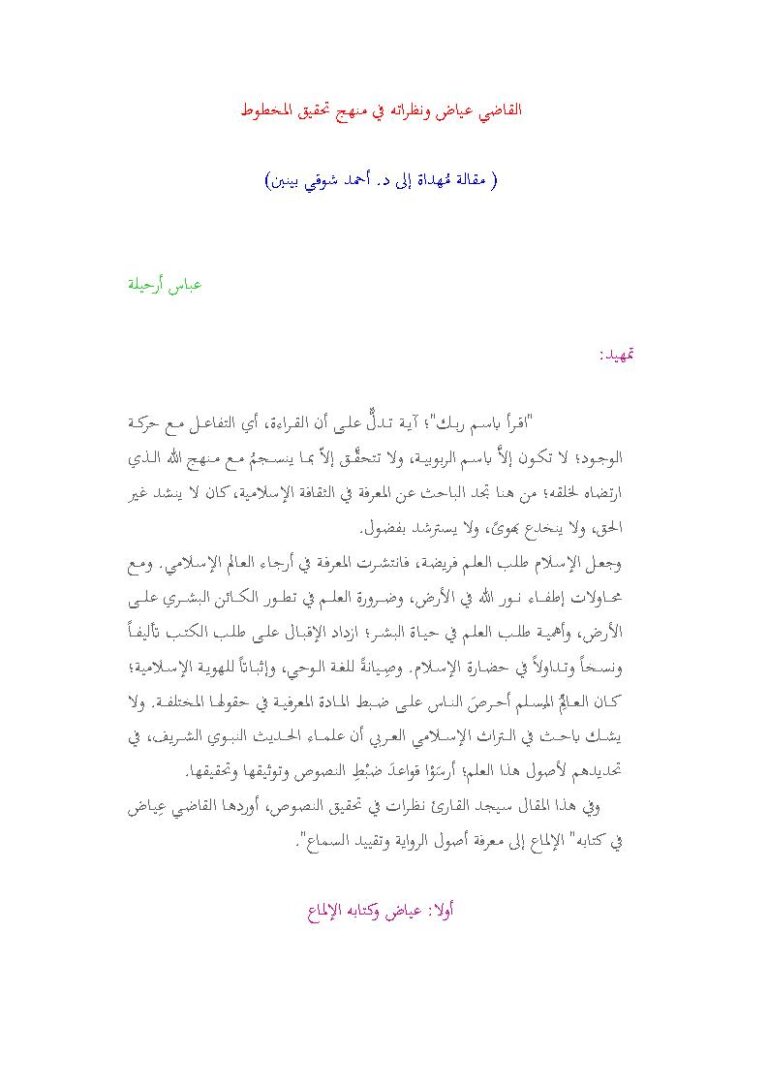 القاضي عياض ونظراته في منهج تحقيق المخطوط
( مقالة مُهداة إلى د. أحمد شوقي بينبين)
عباس أرحيلة
تمهيد:
"اقرأ باسم ربك"؛ آية تدلُّ على أن القراءة، أي التفاعل مع حركة
الوجود؛ لا تكون إلاَّ باسم الربوبية، ولا تتحقَّق إلاّ بما ينسجمُ مع منهج الله الذي
ارتضاه لخلقه؛ من هنا تجد الباحث عن المعرفة في الثقافة الإسلامية، كان لا ينشد غير
الحق، ولا ينخدع بهوىً، ولا يسترشد بفضول.
وجعل الإسلام طلب العلم فريضة، فانتشرت المعرفة في أرجاء العالم الإسلامي. ومع
محاولات إطفاء نور الله في الأرض، وضرورة العلم في تطور الكائن البشري على
الأرض، وأهمية طلب العلم في حياة البشر؛ ازداد الإقبال على طلب الكتب تأليفاً
ونسخاً وتداولاً في حضارة الإسلام. وصِيانةً للغة الوحي، وإثباتاً للهوية الإسلامية؛
كان العالِمُ المسلم أحرصَ الناس على ضبط المادة المعرفية في حقولها المختلفة. ولا
يشك باحث في التراث الإسلامي العربي أن علماء الحديث النبوي الشريف، في
تحديدهم لأصول هذا العلم؛ أرسَوْا قواعدَ ضبْطِ النصوص وتوثيقها وتحقيقها.
وفي هذا المقال سيجد القارئ نظرات في تحقيق النصوص، أوردها القاضي عِياض
في كتابه" الإلماع إلى معرفة أصول الرواية وتقييد السماع".
أولا: عياض وكتابه الإلماع